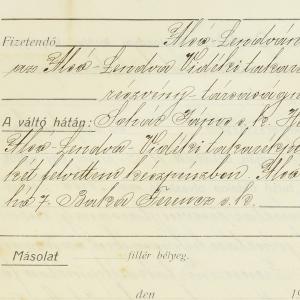 Fizetendő Alsó-Lendván
az Alsó-Lendva Vidéki takaré
részvény társaságná
A váltó hátán: Sohár János s. k. H
Alsó-Lendva-Vidéki takarékpé
két felvettem készpénzben. Alsó
hó 7. Baka Ferencz s. k.
Másolat fillér bélyeg.
den 19